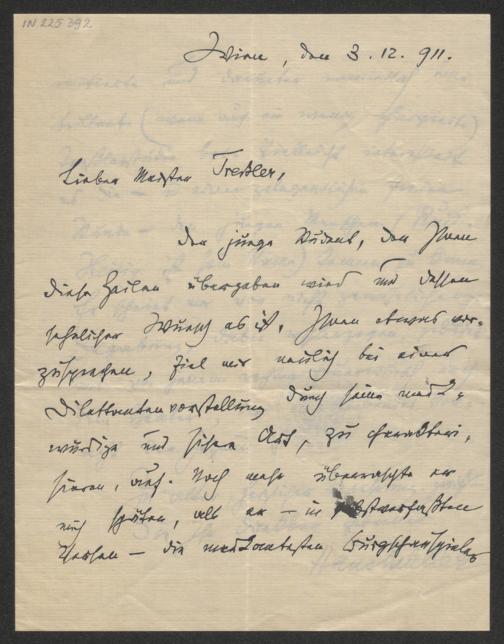 IN 225 392
Wien, den 3.12.911.
Lieber Meister Treßler,
der junge Student, der Ihnen
diese Zeilen übergeben wird und dessen
sehnlicher Wunsch es ist, Ihnen etwas vor-
zusprechen, fiel mir neulich bei einer
Dilettantenvorstellung durch seine merk-
würdige und sichere Art, zu charakteri-
sieren, auf. Noch mehr überraschte er
mich später, als er – in selbstverfaßten
Versen – die markantesten Burgschauspieler